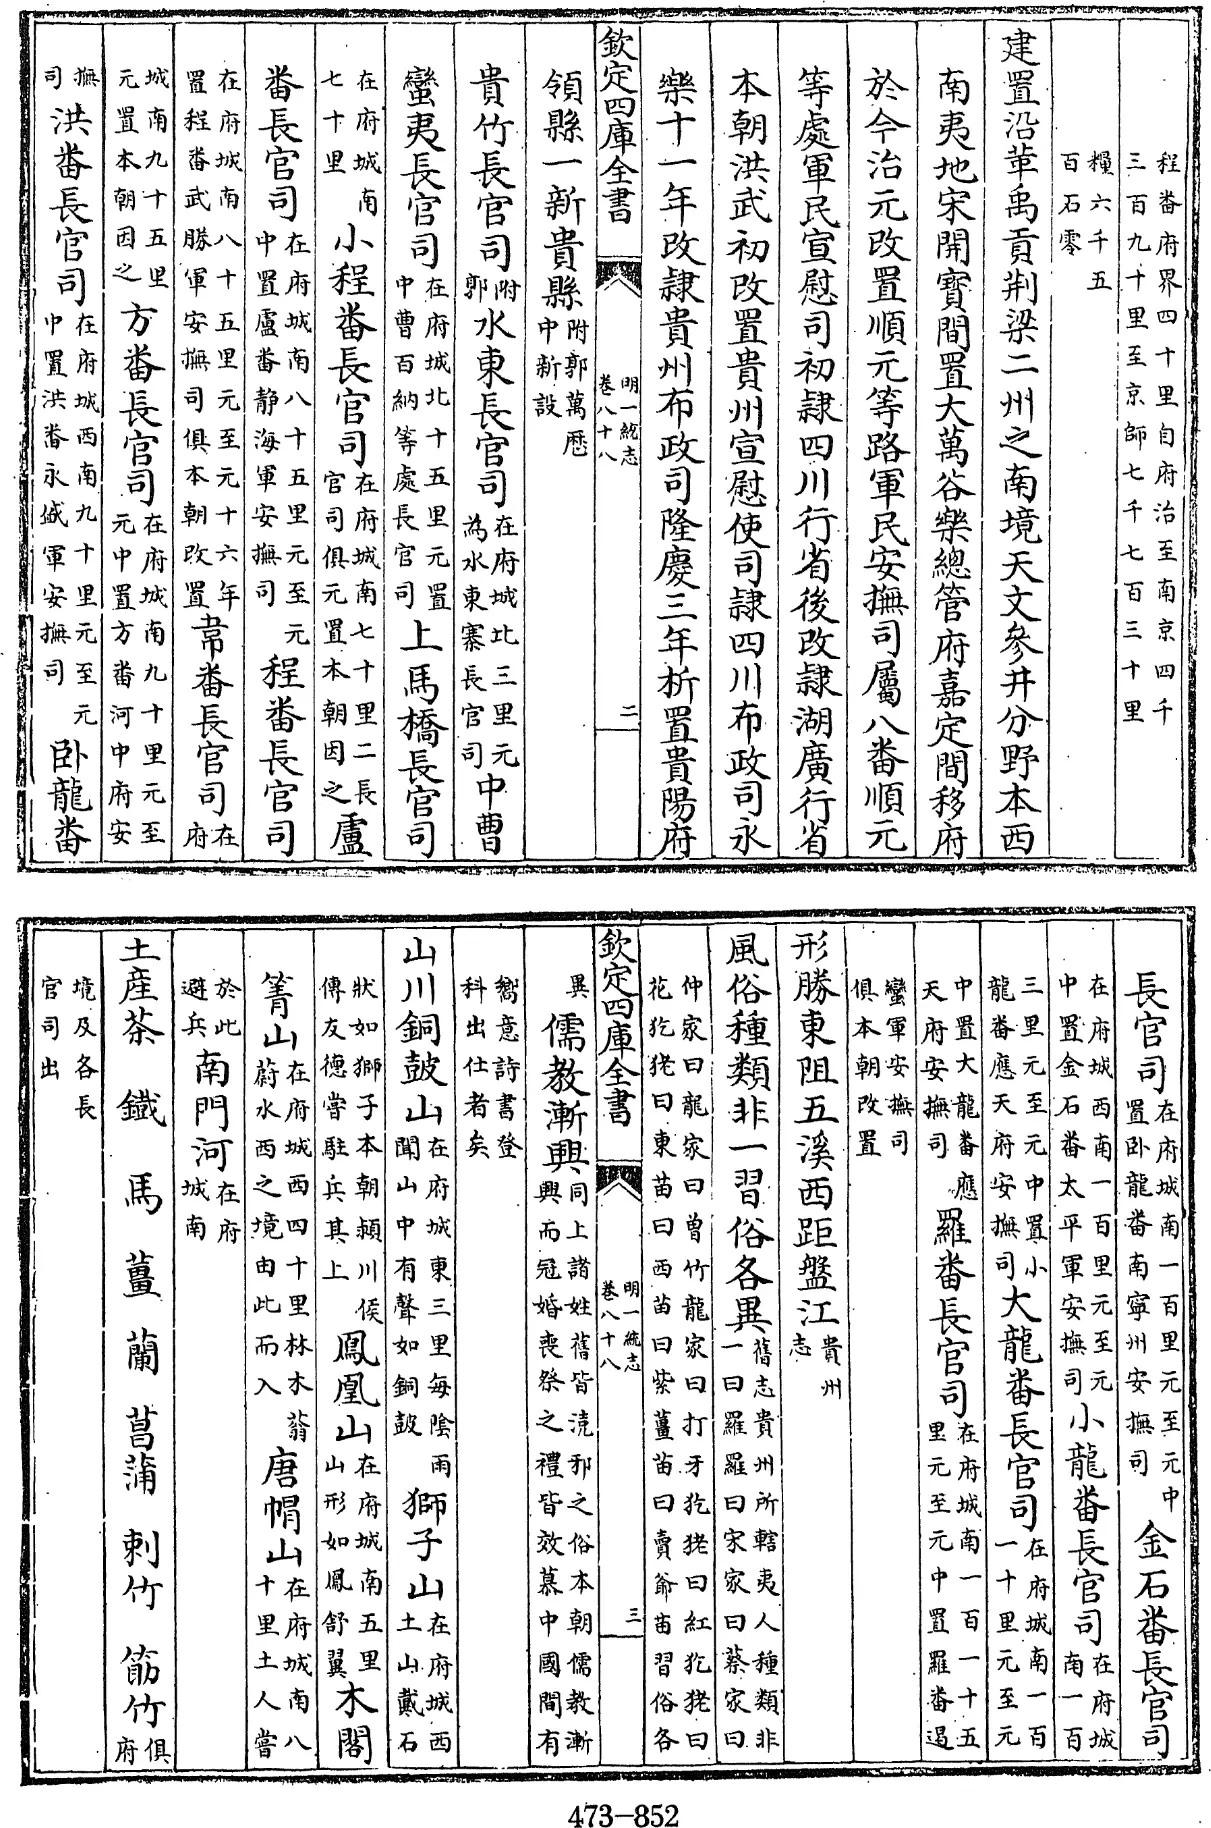 程番府界四十里自府治至南京四千三百九十里至京師七千七百三十里
糧六千五百石零
建置沿革禹貢荆梁二州之南境天文參井分野本西
南夷地宋開寳間置大萬谷樂總管府嘉定間移府
於今治元改置順元等路軍民安撫司屬八番順元
等處軍民宣慰司初隷四川行省後改隷湖廣行省
本朝洪武初改置貴州宣慰使司隷四川布政司永
樂十一年改隷貴州布政司隆慶三年析置貴陽府
欽定四庫全書 明一統志 卷八十八 二
領縣一新貴縣附郭萬厯中新設
貴竹長官司附郭水東長官司在府城北三里元為水東寨長官司中曹
蠻夷長官司在府城北十五里元置中曹百納等處長官司上馬橋長官司
在府城南七十里小程番長官司在府城南七十里二長官司俱元置本朝因之盧
番長官司在府城南八十五里元至元中置盧番静海軍安撫司程番長官司
在府城南八十五里元至元十六年置程番武勝軍安撫司俱本朝改置韋番長官司在府
城南九十五里元置本朝因之方番長官司在府城南九十里元至元中置方番河中府安
撫司洪番長官司在府城西南九十里元至元中置洪番永盛軍安撫司卧龍番
長官司在府城南一百里元至元中置卧龍番南寧州安撫司金石番長官司
在府城西南一百里元至元中置金石番太平軍安撫司小龍番長官司在府城南一百
三里元至元中置小龍番應天府安撫司大龍番長官司在府城南一百一十里元至元
中置大龍番應天府安撫司羅番長官司在府城南一百一十五里元至元中置羅番遏
蠻軍安撫司俱本朝改置
形勝東阻五溪西距盤江貴州志
風俗種類非一習俗各異舊志貴州所轄夷人種類非一曰羅羅曰宋家曰蔡家曰
仲家曰龍家曰曾竹龍家曰打牙犵狫曰紅犵狫曰花犵狫曰東苗曰西苗曰紫薑苗曰賣爺苗習俗各
欽定四庫全書 明一統志 卷八十八 三
異儒教漸興同上諸姓舊皆澆邪之俗本朝儒教漸興而冠婚喪祭之禮皆效慕中國間有
嚮意詩書登科出仕者矣
山川銅鼓山在府城東三里每陰雨聞山中有聲如銅鼓獅子山在府城西土山戴石
狀如獅子本朝潁川侯傳友德嘗駐兵其上鳳凰山在府城南五里山形如鳳舒翼木閣
箐山在府城西四十里林木蓊蔚水西之境由此而入唐帽山在府城南八十里土人嘗
於此避兵南門河在府城南
土産茶 鐵 馬 薑 蘭 菖蒲 刺竹 筯竹俱府
境及各長官司出
473-852